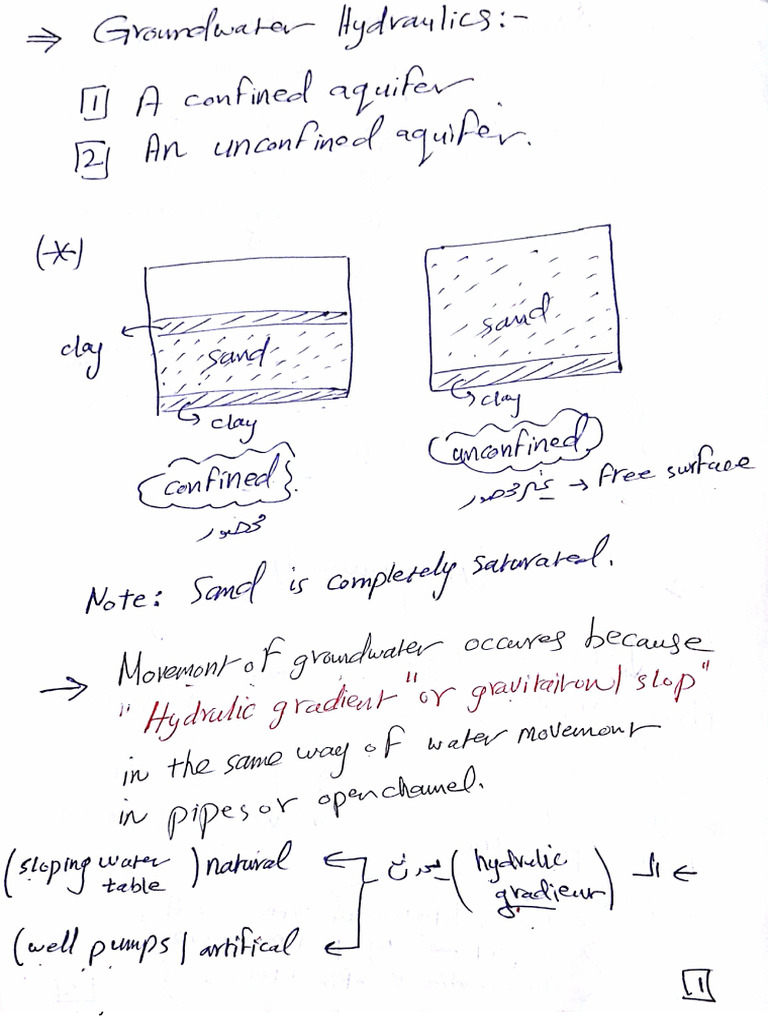 ⇒ Groundwater Hydraulics:-
1 A confined aquifer
2 An unconfined aquifer.
(*)
clay
sand
clay
confined
محصور
sand
clay
unconfined
غير محصور → free surface
Note: Sand is completely saturated.
→ Movement of groundwater occures because
"Hydrulic gradient" or gravitaitonal slop"
in the same way of water movement
in pipes or open channel.
← الـ (hydrulic gradieur) يحدث
natural (sloping water table)
artifical (well pumps)
1